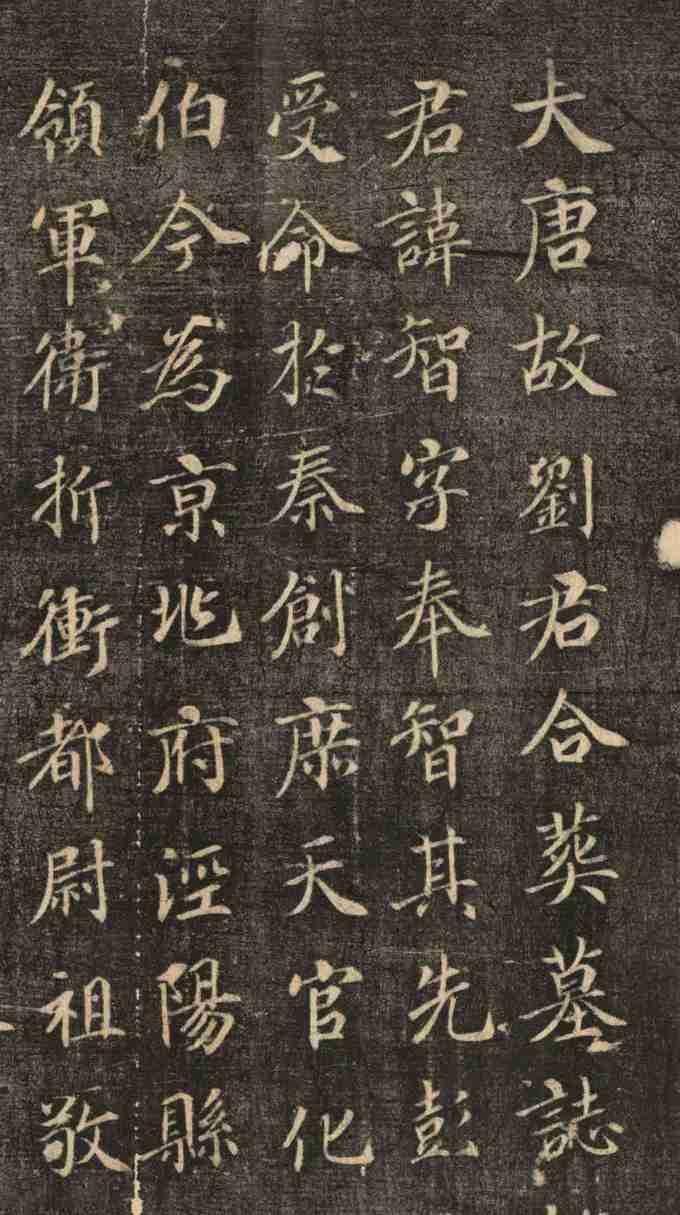 大唐故劉君合葬墓誌
君諱智字奉智其先彭
受命於秦創廗天官化
伯今為京兆府涇陽縣
領軍衛折衝都尉祖敬